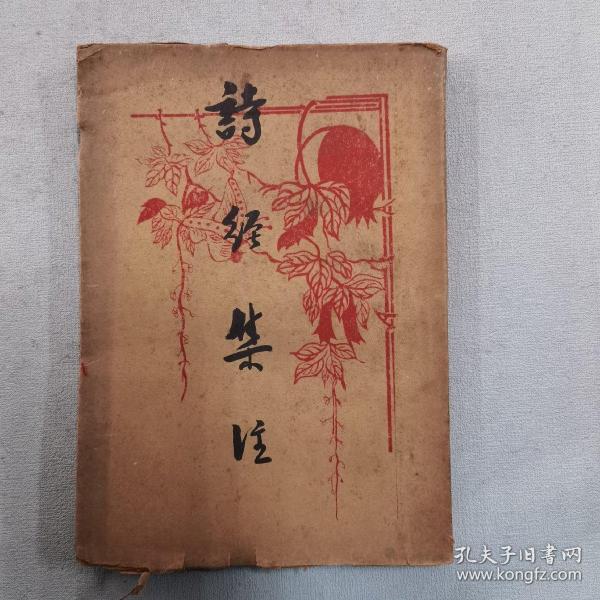 詩經集注
孔夫子旧書网
www.kongfz.com